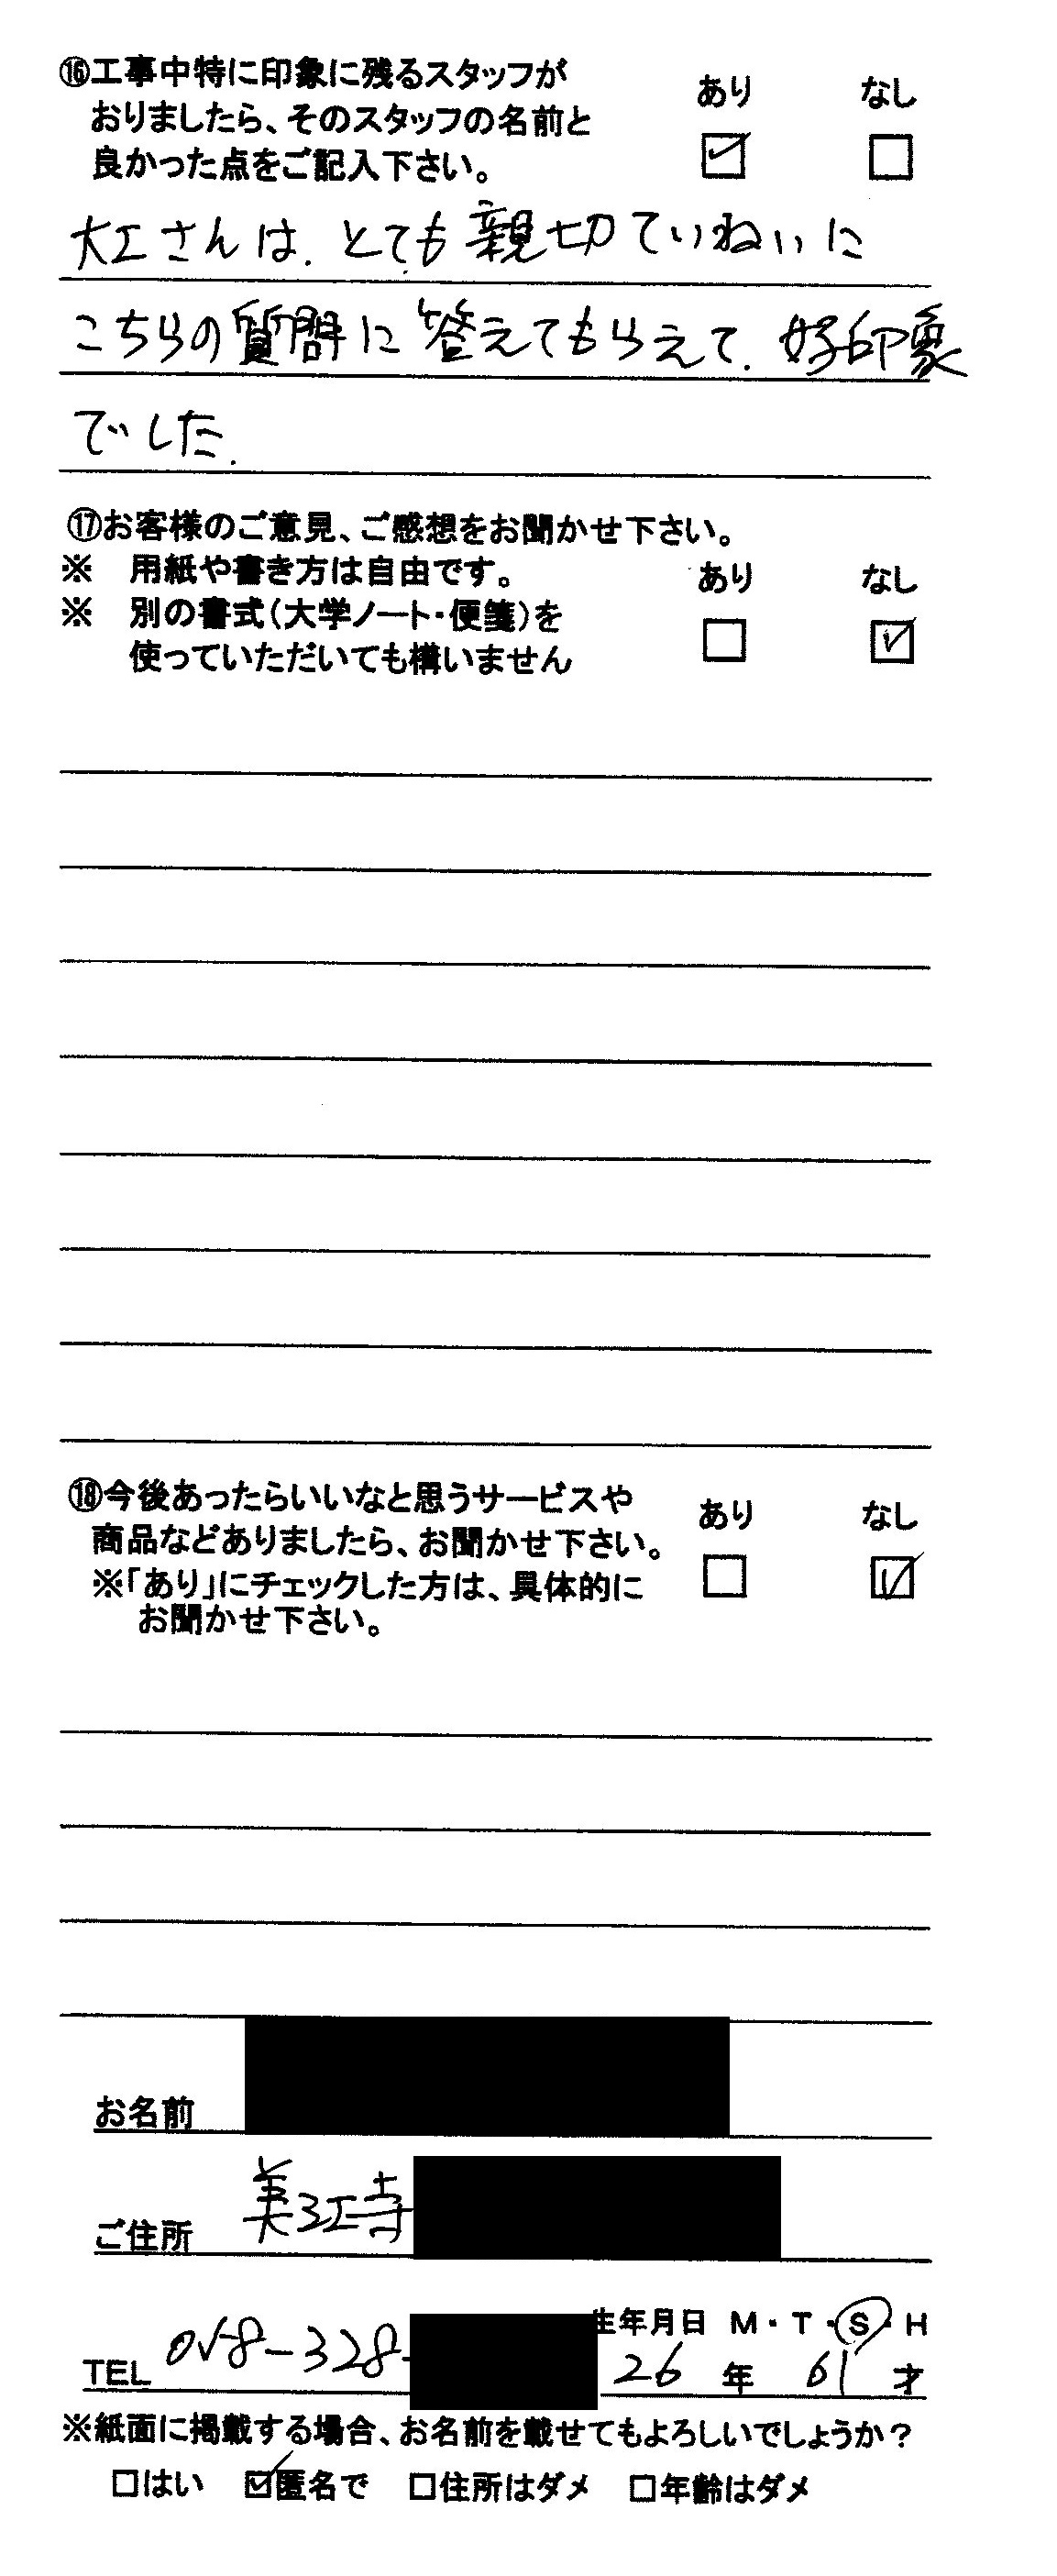 ⑯工事中特に印象に残るスタッフが
おりましたら、そのスタッフの名前と
良かった点をご記入下さい。
あり なし
大工さんは、とても親切ていねいに
こちらの質問に答えてもらえて、好印象
でした。
⑰お客様のご意見、ご感想をお聞かせ下さい。
※ 用紙や書き方は自由です。
あり なし
※ 別の書式(大学ノート・便箋)を
使っていただいても構いません
⑱今後あったらいいなと思うサービスや
商品などありましたら、お聞かせ下さい。
あり なし
※「あり」にチェックした方は、具体的に
お聞かせ下さい。
お名前
ご住所 美江寺
生年月日 M・T・S・H
TEL 058-328- 26 年 61 才
※紙面に掲載する場合、お名前を載せてもよろしいでしょうか?
□はい ☑匿名で □住所はダメ □年齢はダメ